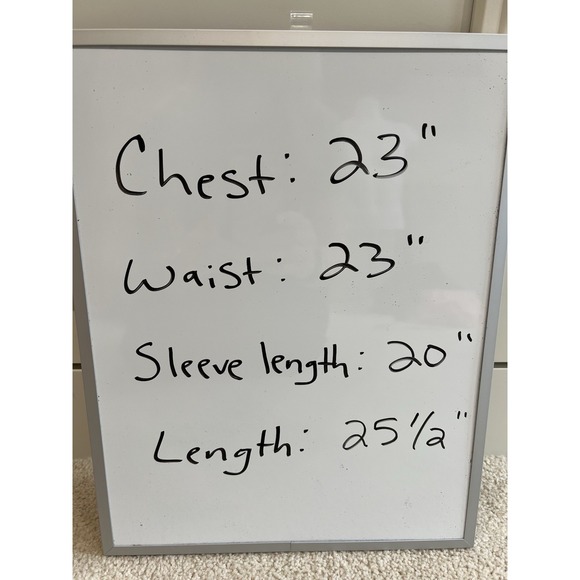 Chest: 23"
Waist: 23"
Sleeve length: 20"
Length: 25 1/2"